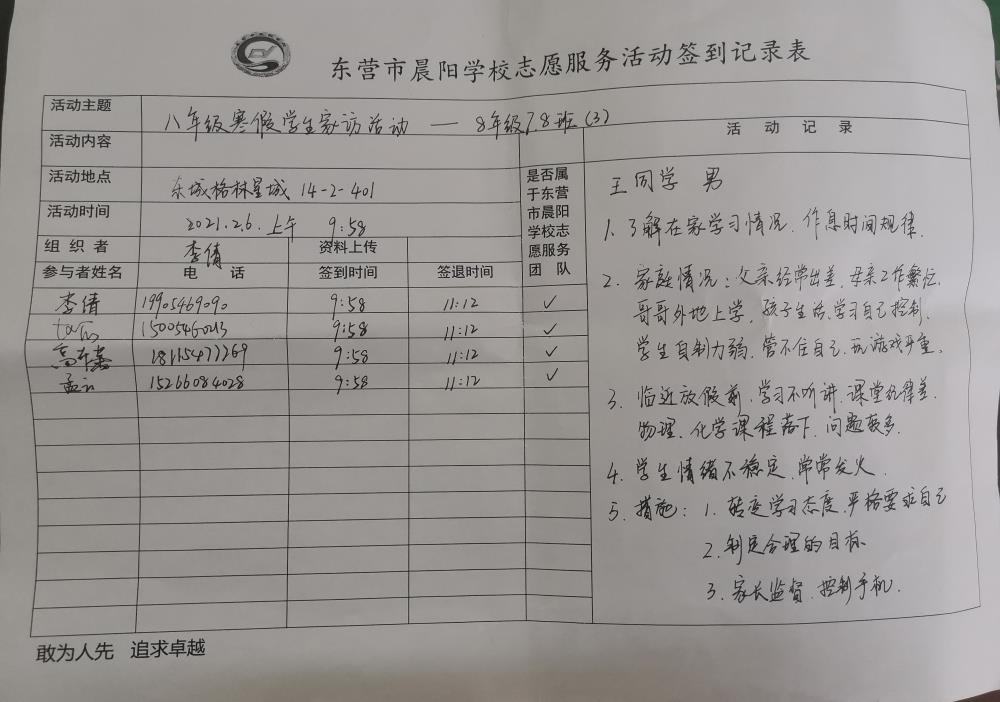 东营市晨阳学校志愿服务活动签到记录表
活动主题 八年级寒假学生家访活动 — 8年级7.8班(3)
活动内容
活动记录
活动地点 东城格林星城 14-2-401
活动时间 2021.2.6.上午 9:58
是否属于东营市晨阳学校志愿服务团队
组织者 李倩 资料上传
参与者姓名 电话 签到时间 签退时间
李倩 19905469090 9:58 11:12 ✓
9:58 11:12 ✓
18115477269 9:58 11:12 ✓
孟 15266084028 9:58 11:12 ✓
王同学 男
1. 了解在家学习情况、作息时间规律.
2. 家庭情况:父亲经常出差、母亲工作繁忙、
哥哥外地上学、孩子生活、学习自己控制、
学生自制力弱、管不住自己、玩游戏严重.
3. 临近放假前、学习不听讲、课堂纪律差、
物理、化学课程落下、问题较多.
4. 学生情绪不稳定、常常发火.
5. 措施: 1. 转变学习态度、严格要求自己
2. 制定合理的目标
3. 家长监督、控制手机.
敢为人先 追求卓越